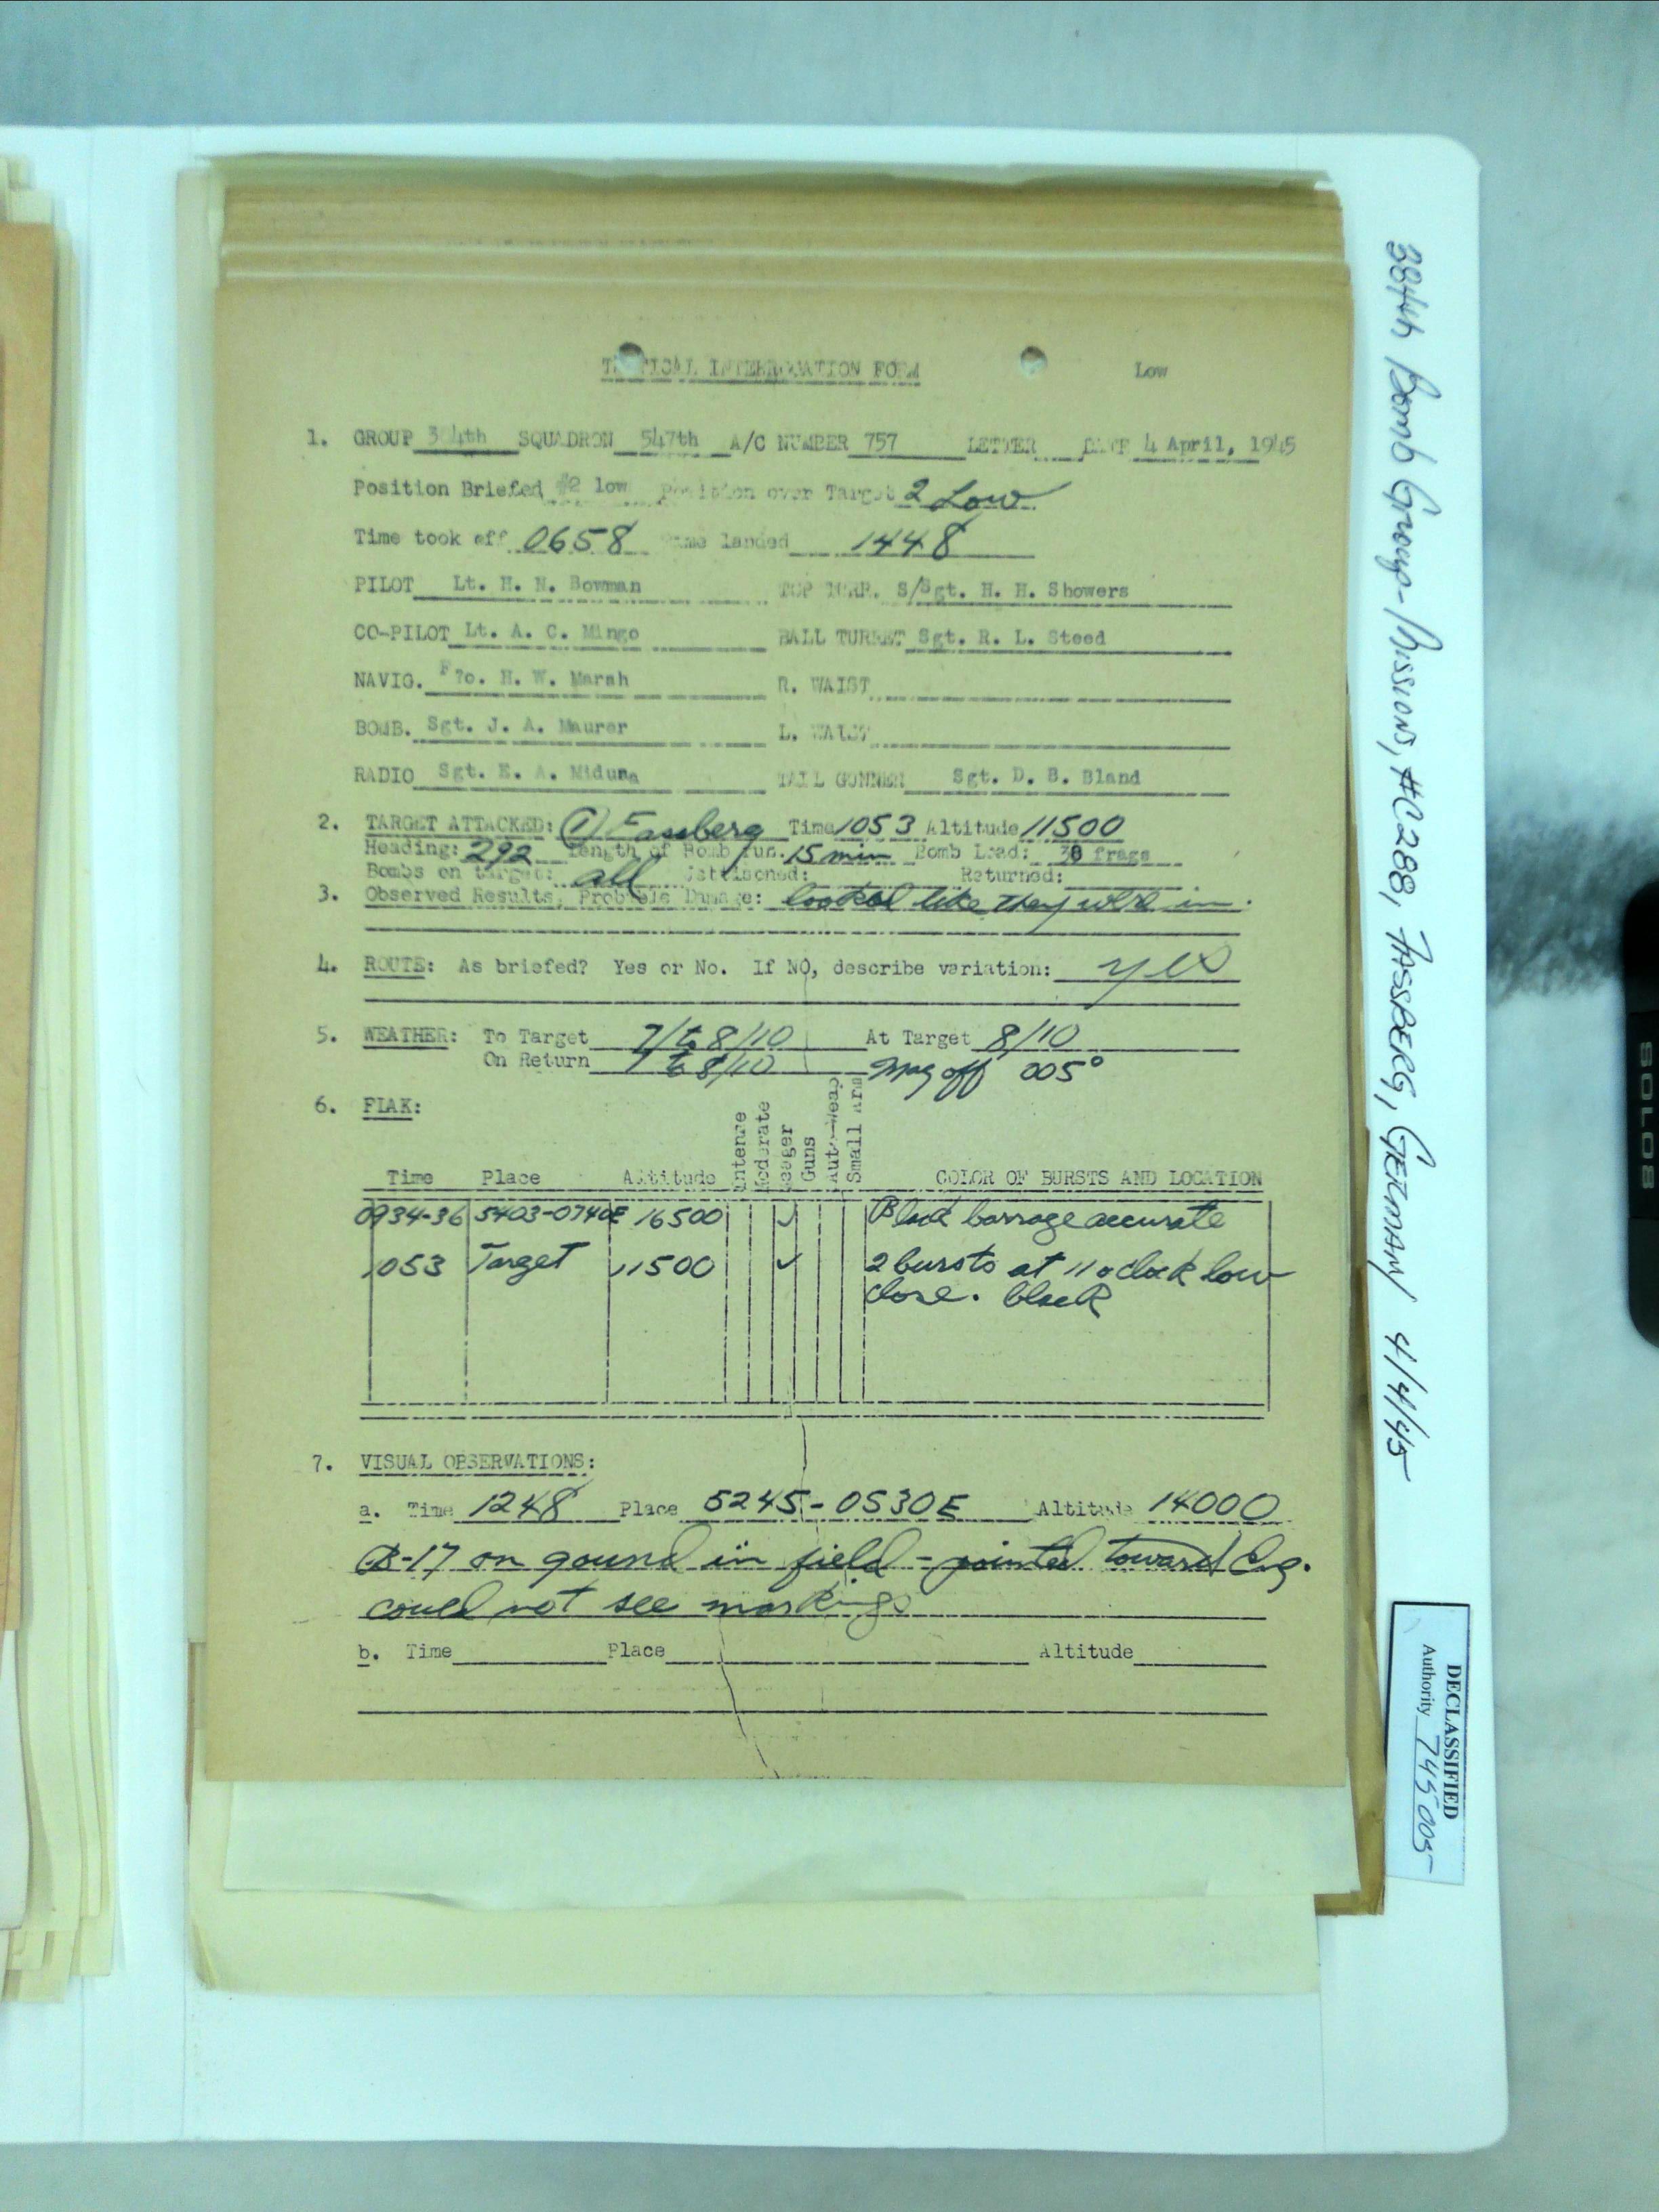 TACTICAL INTERROGATION FORM Low
1. GROUP 384th SQUADRON 547th A/C NUMBER 757 LETTER DATE 4 April, 1945
Position Briefed #2 low Position over Target 2 Low
Time took off 0658 Time landed 1448
PILOT Lt. H. N. Bowman TOP TURR. S/Sgt. H. H. Showers
CO-PILOT Lt. A. C. Mingo BALL TURRET Sgt. R. L. Steed
NAVIG. F/O. H. W. Marsh R. WAIST
BOMB. Sgt. J. A. Maurer L. WAIST
RADIO Sgt. E. A. Miduna TAIL GUNNER Sgt. D. B. Bland
2. TARGET ATTACKED: (1) Fassberg Time 1053 Altitude 11500
Heading: 292 Length of Bomb run. 15 min Bomb Load: 38 frags
Bombs on target: all Jettisoned: Returned:
3. Observed Results, Probable Damage: looked like they were in.
4. ROUTE: As briefed? Yes or No. If NO, describe variation: yes
5. WEATHER: To Target 7/to 8/10 At Target 8/10
On Return 7 to 8/10 Mag off 005°
6. FLAK:
Intense
Moderate
Meager
Guns
Auto-Weap
Small Arms
Time Place Altitude COLOR OF BURSTS AND LOCATION
0934-36 5403-0740E 16500 ✓ Black barrage accurate
1053 Target 11500 ✓ 2 bursts at 11 oclock low
close. black
7. VISUAL OBSERVATIONS:
a. Time 1248 Place 5245-0530E Altitude 14000
B-17 on gound in field - pointed toward Eng.
could not see markings
b. Time Place Altitude
384th Bomb Group-Mission, #C288, FASSBERG, GERMANY 4/4/45
DECLASSIFIED
Authority 745005